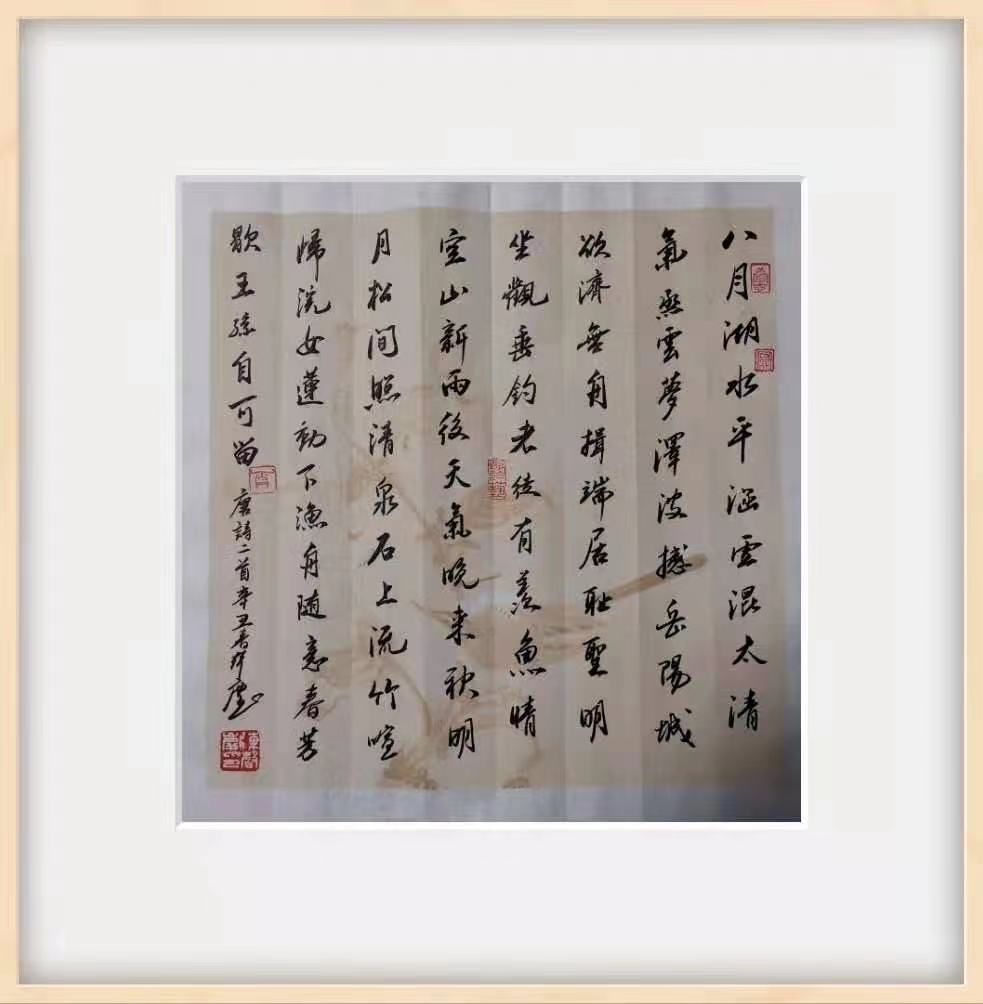 八月湖水平涵虛混太清
氣蒸雲夢澤波撼岳陽城
欲濟無舟揖端居耻聖明
坐觀垂釣者徒有羨魚情
空山新雨後天氣晚来秋明
月松間照清泉石上流竹喧
歸浣女蓮動下漁舟随意春芳
歇王孫自可留
唐詩二首辛丑春